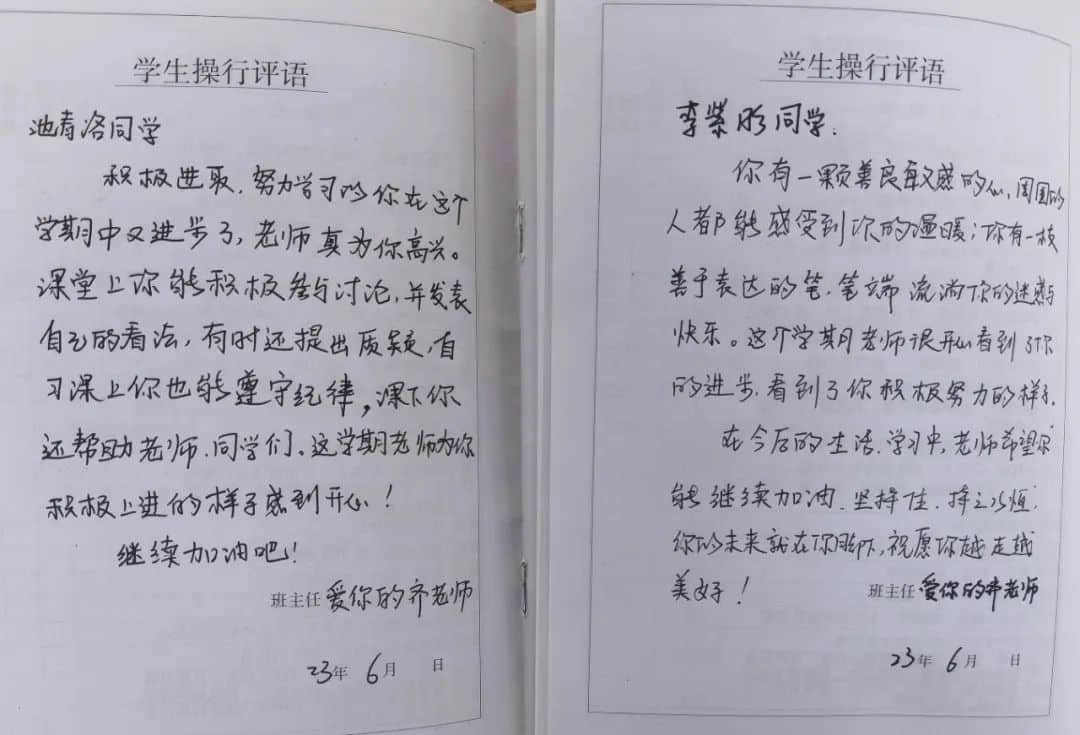 学生操行评语
池春洛同学
积极进取,努力学习的你在这个
学期中又进步了,老师真为你高兴。
课堂上你能积极参与讨论,并发表
自己的看法,有时还提出质疑,自
习课上你也能遵守纪律,课下你
还帮助老师、同学们。这学期老师为你
积极上进的样子感到开心!
继续加油吧!
班主任 爱你的齐老师
23年 6月 日
学生操行评语
李紫彤同学.
你有一颗善良敏感的心,周围的
人都能感受到你的温暖;你有一枝
善于表达的笔,笔端流淌你的迷惑与
快乐。这个学期老师很开心看到了你
的进步,看到了你积极努力的样子.
在今后的生活、学习中,老师希望你
能继续加油、坚持住,持之以恒.
你的未来就在你脚下,祝愿你越走越
美好!
班主任 爱你的齐老师
23年 6月 日